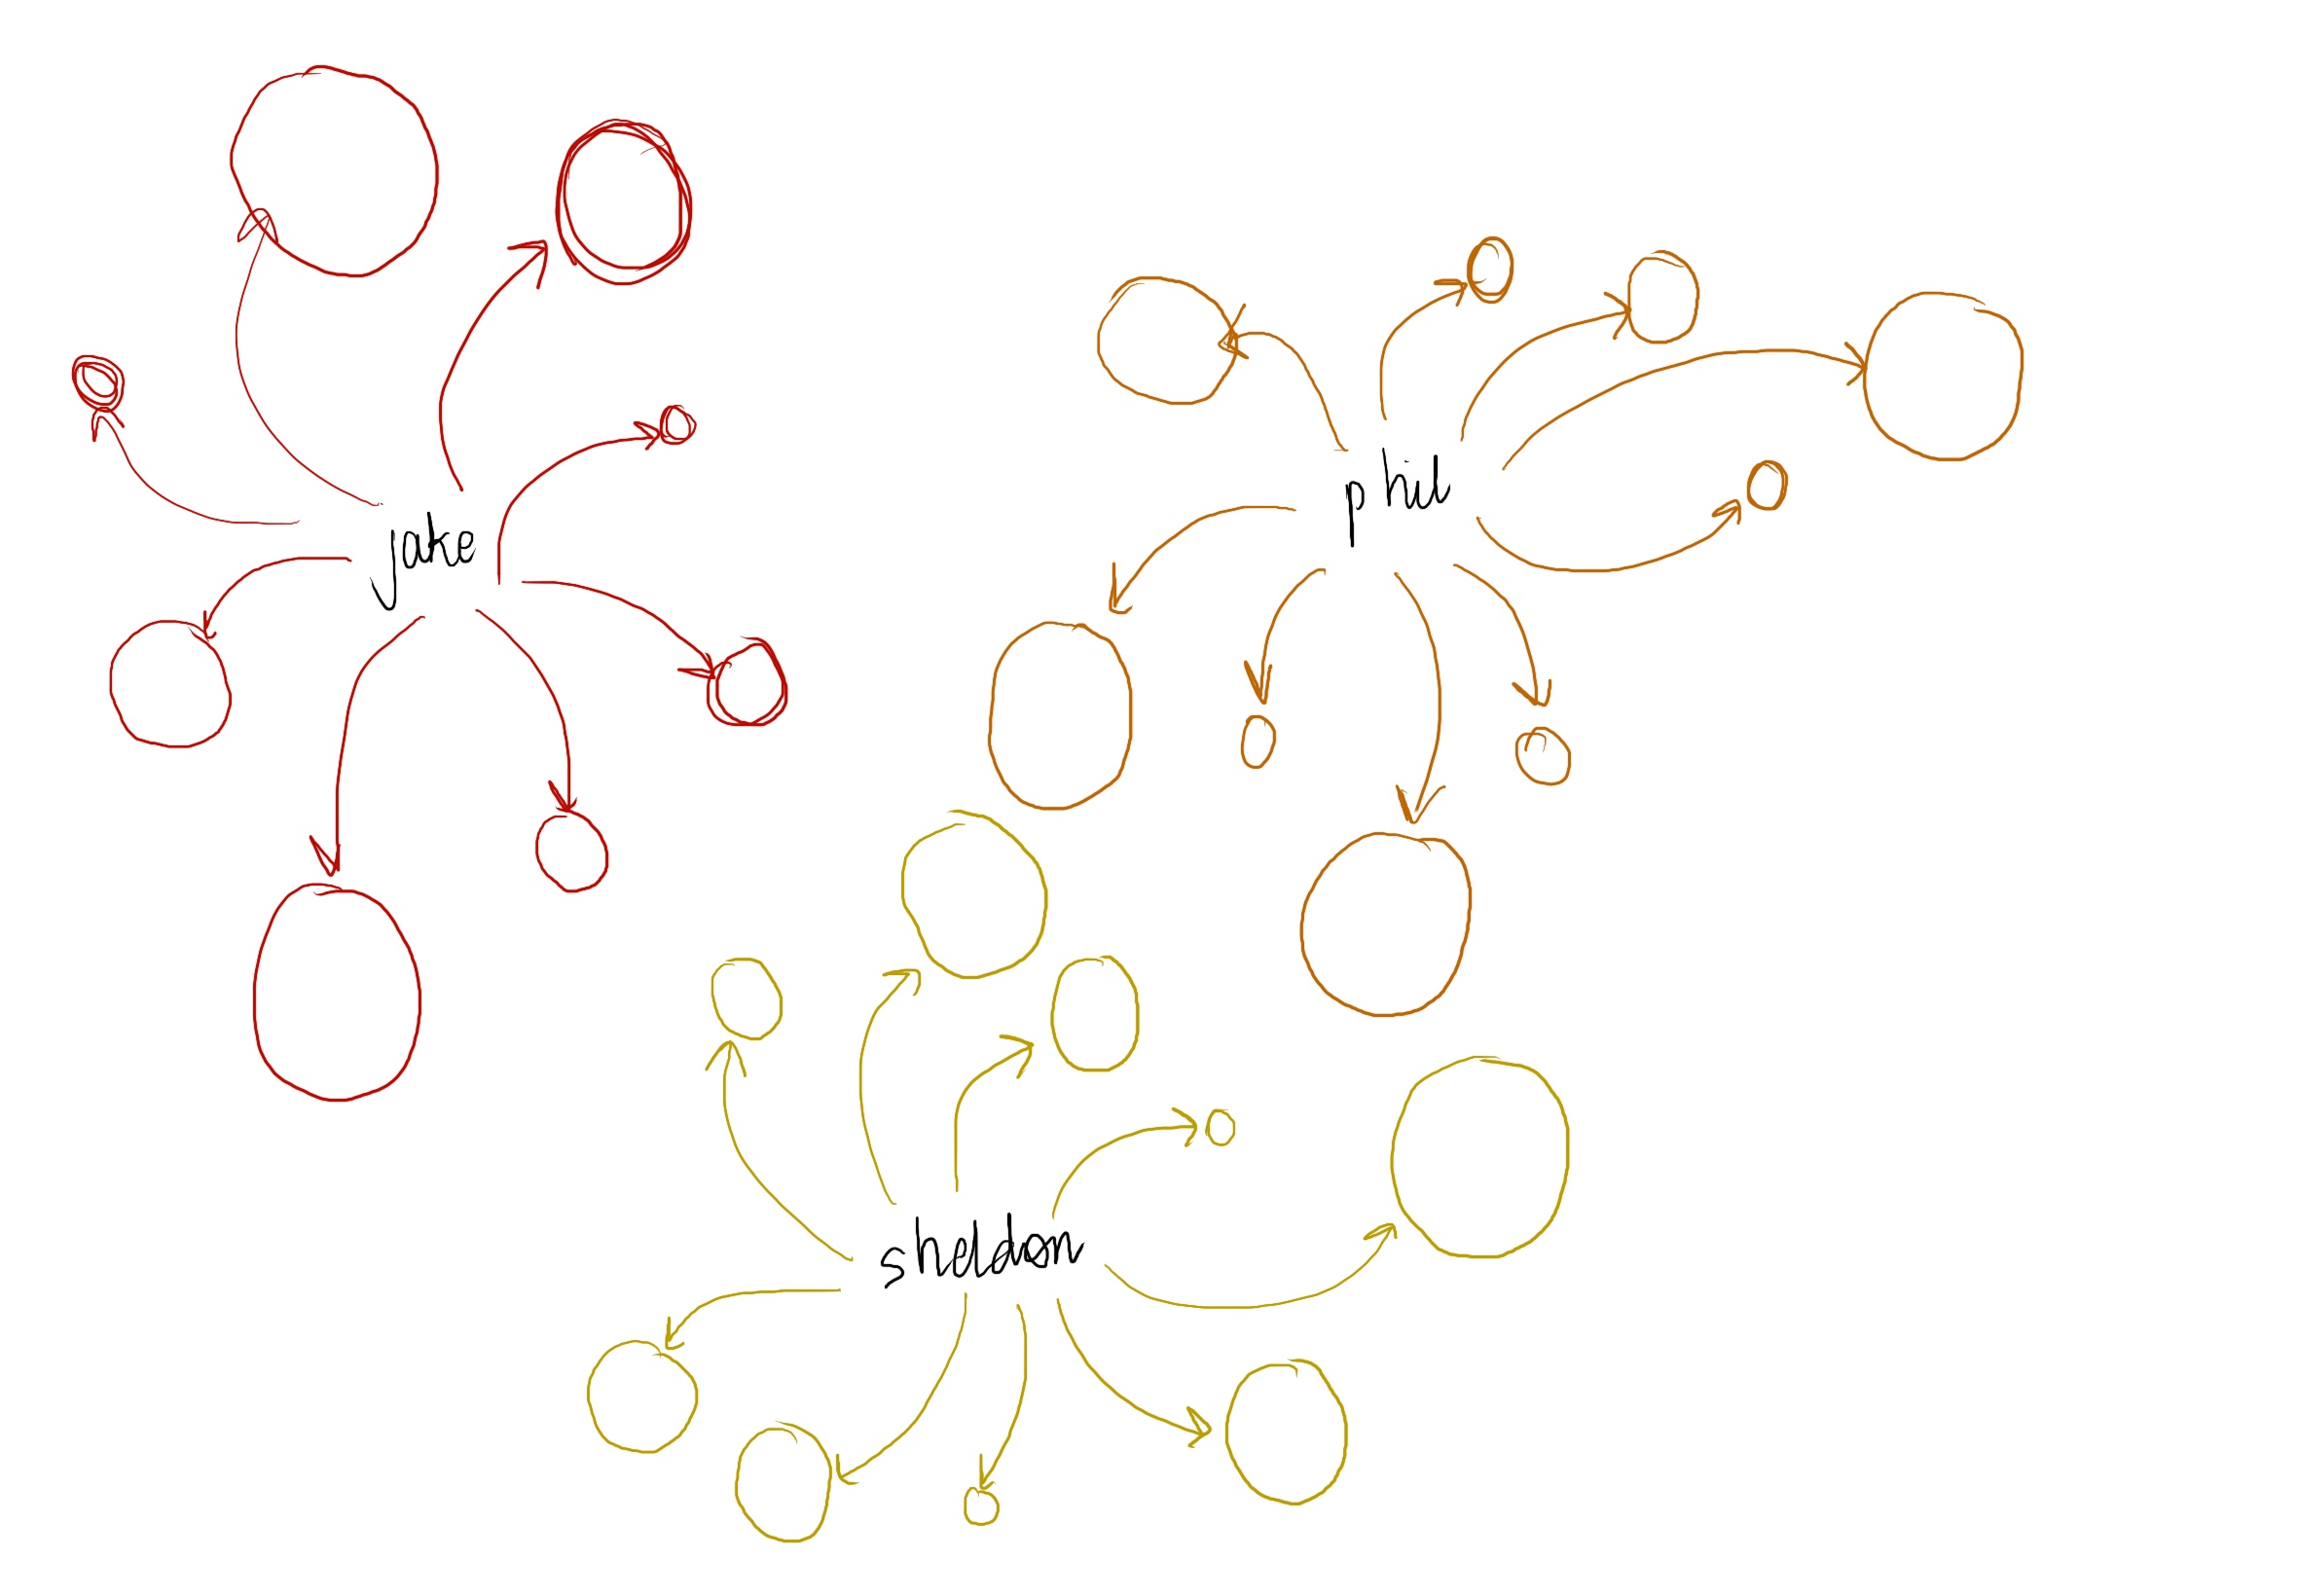 jake
phil
sheldon